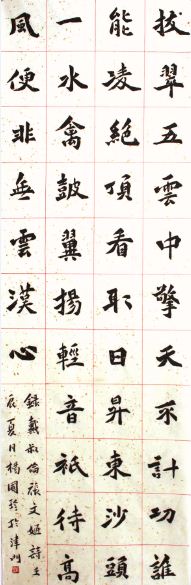 拔翠五雲中擎天不計功誰
能凌絕頂看取日昇東沙頭
一水禽皷翼揚輕音衹待高
風便非無雲漢心
錄戴叔倫張文姬詩壬
辰夏日楊國於津門